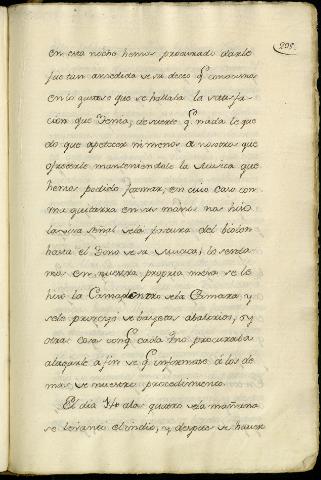 205.
en esta noche hemos procurado darle
fue tan a medida de su deseo q.e conosimos
en lo gustoso que se hallaba la satisfa-
cion que tenia, de suerte q.e nada le que
do que apetecer ni menos a nosotros que
ofrecerle manteniendole la Musica que
hemos podido formar, en cuio caso con
mi guitarra en sus manos nos hiso
la una señal de la postura del
hasta el tono de su Musica; lo senta-
mos en nuestra propria mesa se le
hiso la Cama dentro de la Camara, y
se le de tarjetas abalorios, y
otras cosas conq.e cada Uno procuraba
alagarle a fin de q.e informase á los de
mas, de nuestro procedimiento.
El dia 14 a las quatro de la mañana
se levantó el indio, y despues de haver